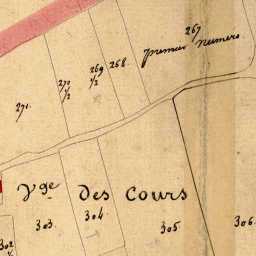 267
premier numero
268.
269
1/2
272
1/2
271.
Vge des Cours
303.
304.
305.
306.
302
1/2